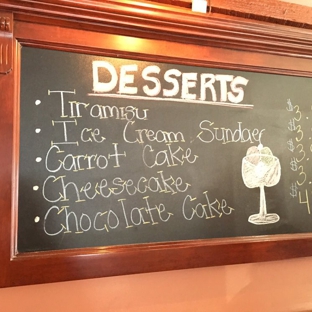 DESSERTS
• Tiramisu
• Ice Cream Sundaes
• Carrot Cake
• Cheesecake
• Chocolate Cake